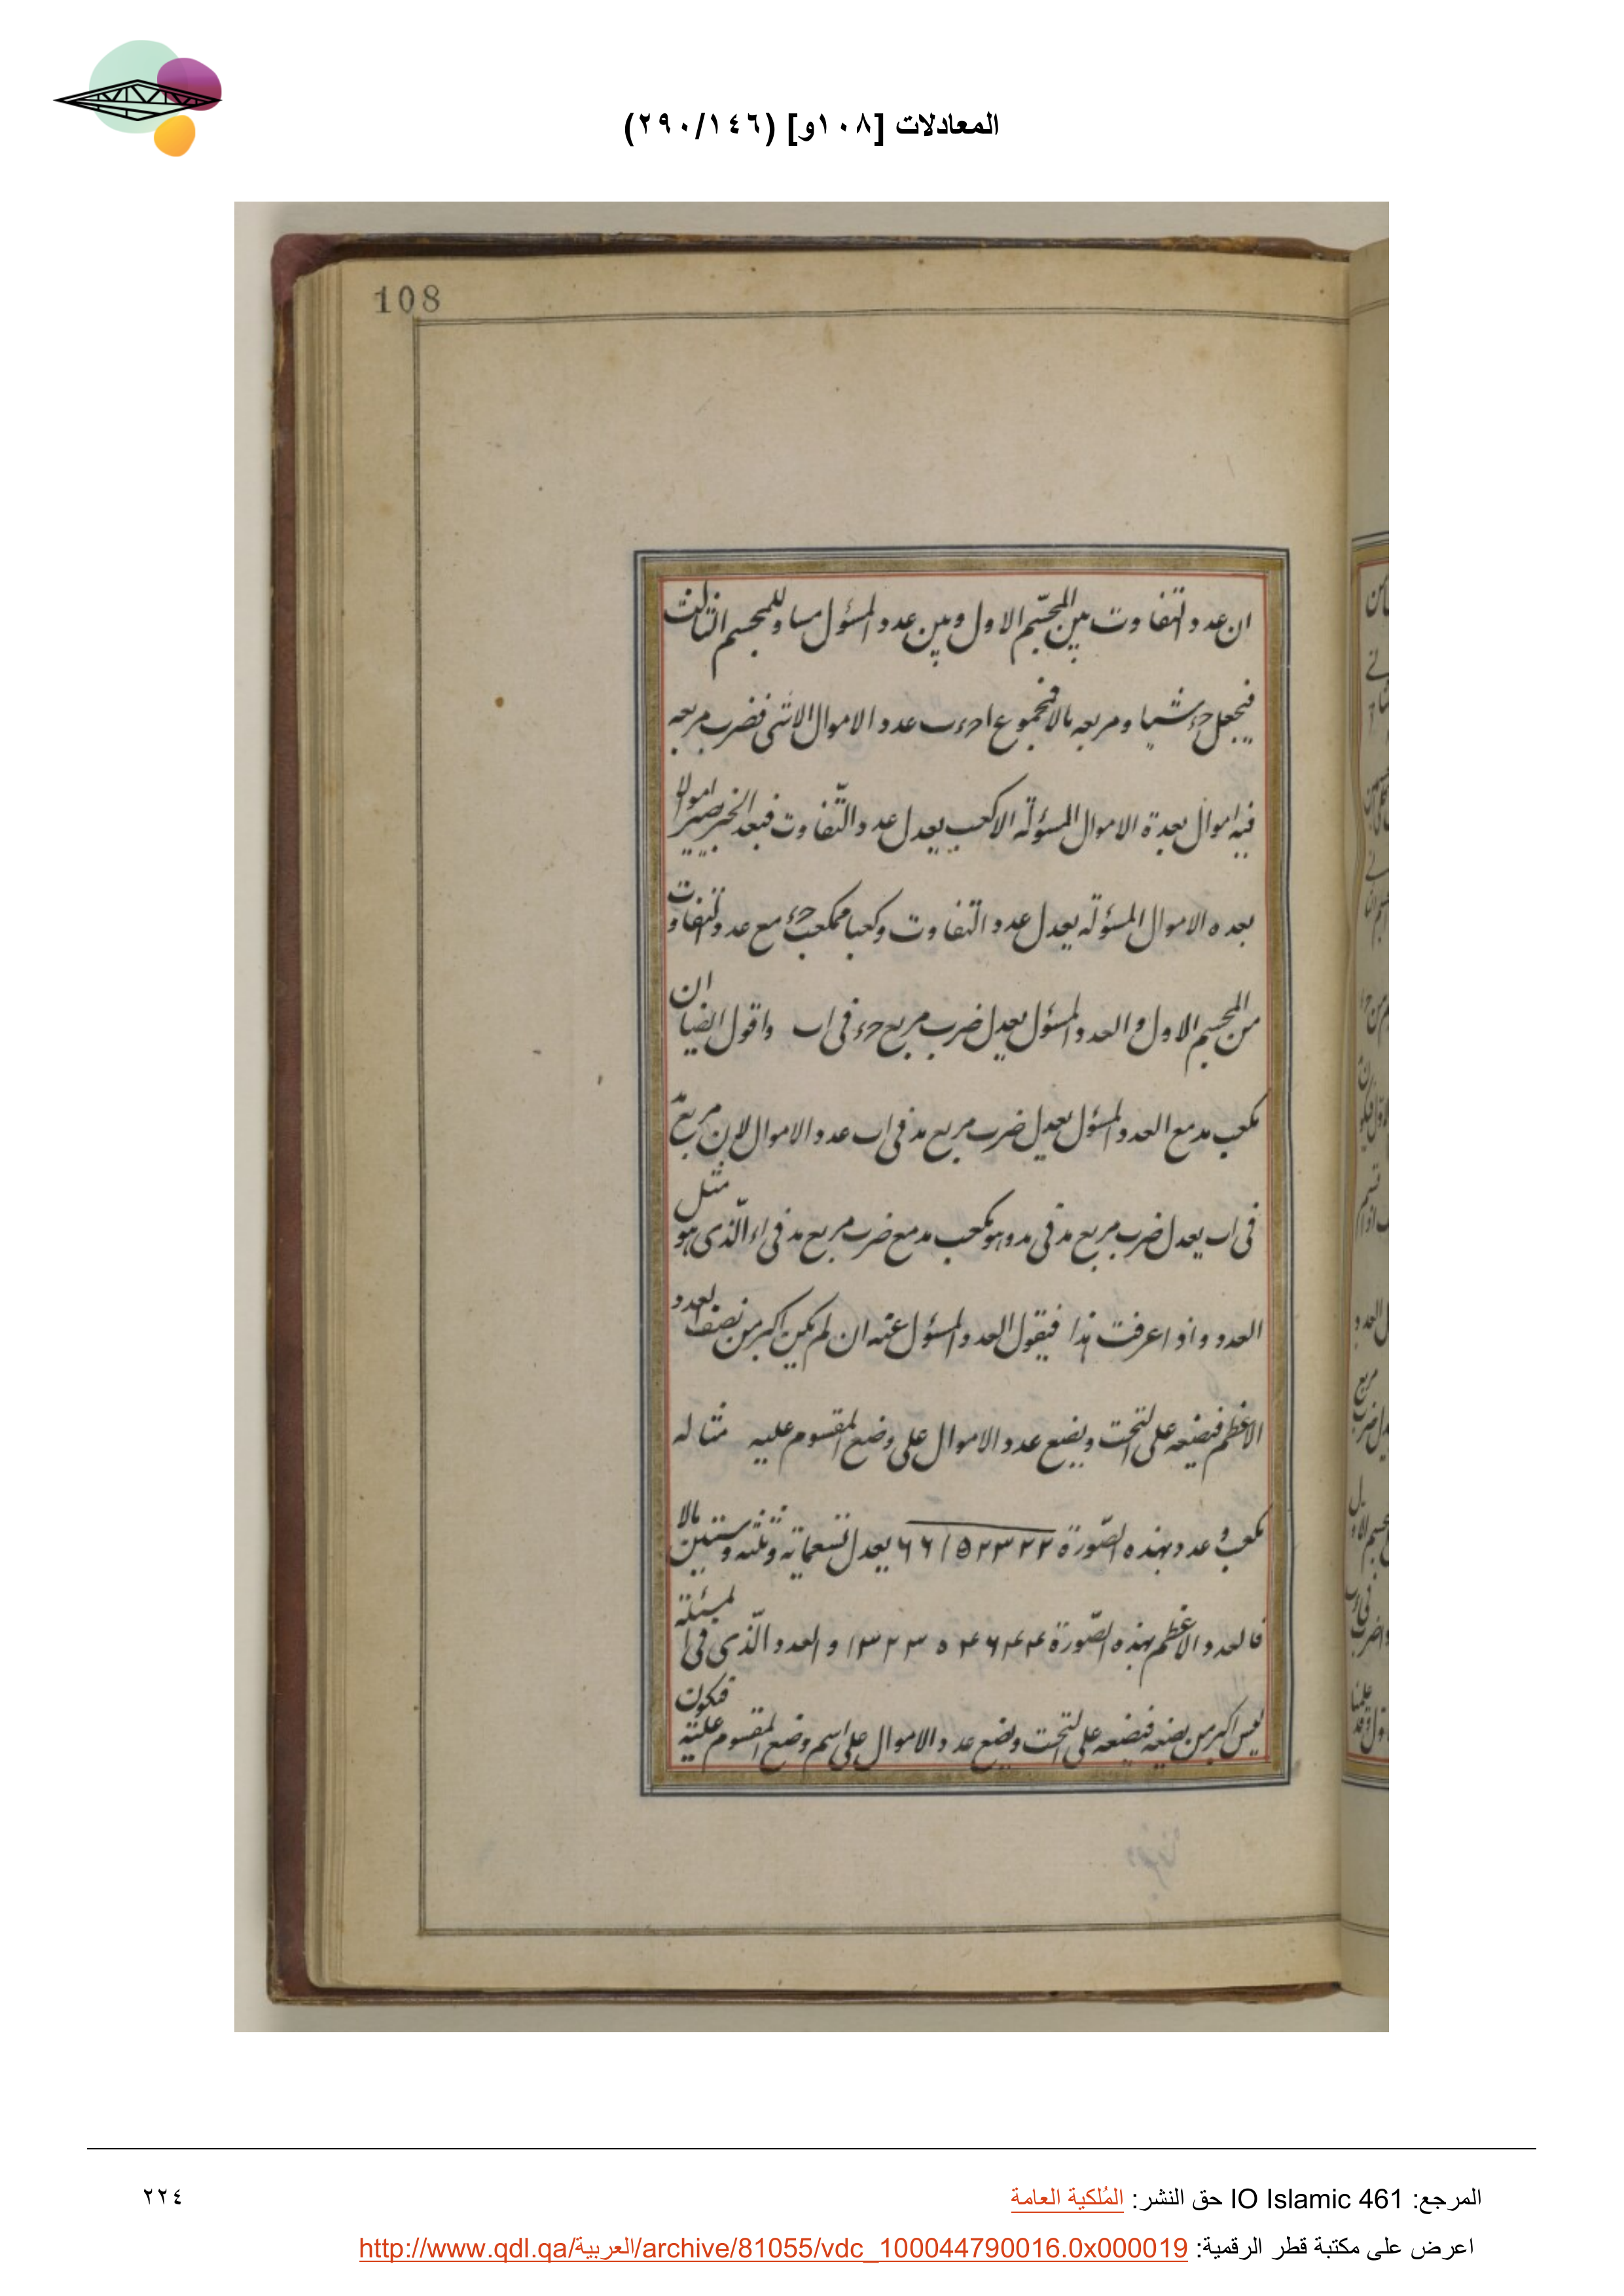 المعادلات [١٠٨و] (٢٩٠/١٤٦)
108
ان عدد التفاوت بين المجسّم الاول وبين عدد المسؤل مساو للمجسم الثالث
فيجعل حء شيا ومربعه مالا فمجموع احء ب عدد الاموال الا شى فضرب مربعه
فيه اموال بعدة الاموال المسؤلة الا كعب يعدل عدد التّفاوت فبعد الجبر يصير اموالا
بعده الاموال المسؤلة يعدل عدد التفاوت وكعبا فمكعب حء مع عدد التفاوت
من المجسم الاول والعدد المسؤل يعدل ضرب مربع حء فى اب واقول ايضا ان
مكعب مد مع العدد المسؤل يعدل ضرب مربع مد فى اب عدد الاموال لان مربع
فى اب يعدل ضرب مربع مد فى مد وهو مكعب مد مع ضرب مربع مد فى اء الّذى هو مثل
العدد واذ اعرفت هذا فيقول العدد المسؤل عنه ان لم يكن اكبر من نصف العدد
الاعظم فيضعه على التحت ويضع عدد الاموال على وضع المقسوم عليه مثاله
مكعب وعدد بهذه الصّورة ٦٦١٥٢٣٢٢ يعدل تسعماية وثلثه وستين مالا
فالعدد الاعظم بهذه الصّورة ١٣٢٣٠٥٤٦٤٤ والعدد الّذى فى المسئلة
ليس اكبر من نصفه فيضعه على التحت ويضع عدد الاموال على اسم وضع المقسوم عليه فيكون
المرجع: IO Islamic 461 حق النشر: المُلكية العامة
٢٢٤
اعرض على مكتبة قطر الرقمية: http://www.qdl.qa/العربية/archive/81055/vdc_100044790016.0x000019